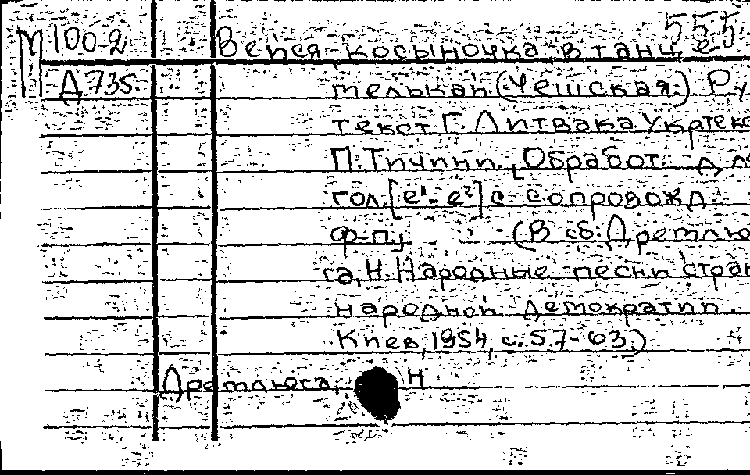 М 100-2 Вейся косыночка в танце 555
Д 735. телькап (Чешская.) Ру
текст Г. Литвака Укр текс
П. Тичини. Обработ. дл
гол. [e¹-e²] с сопровожд.
ф-п. (В сб. Дремлю
га, Н. Народные песни стран
народной демократии.
Киев, 1954, с. 57-63.)
Дремлюга, Н